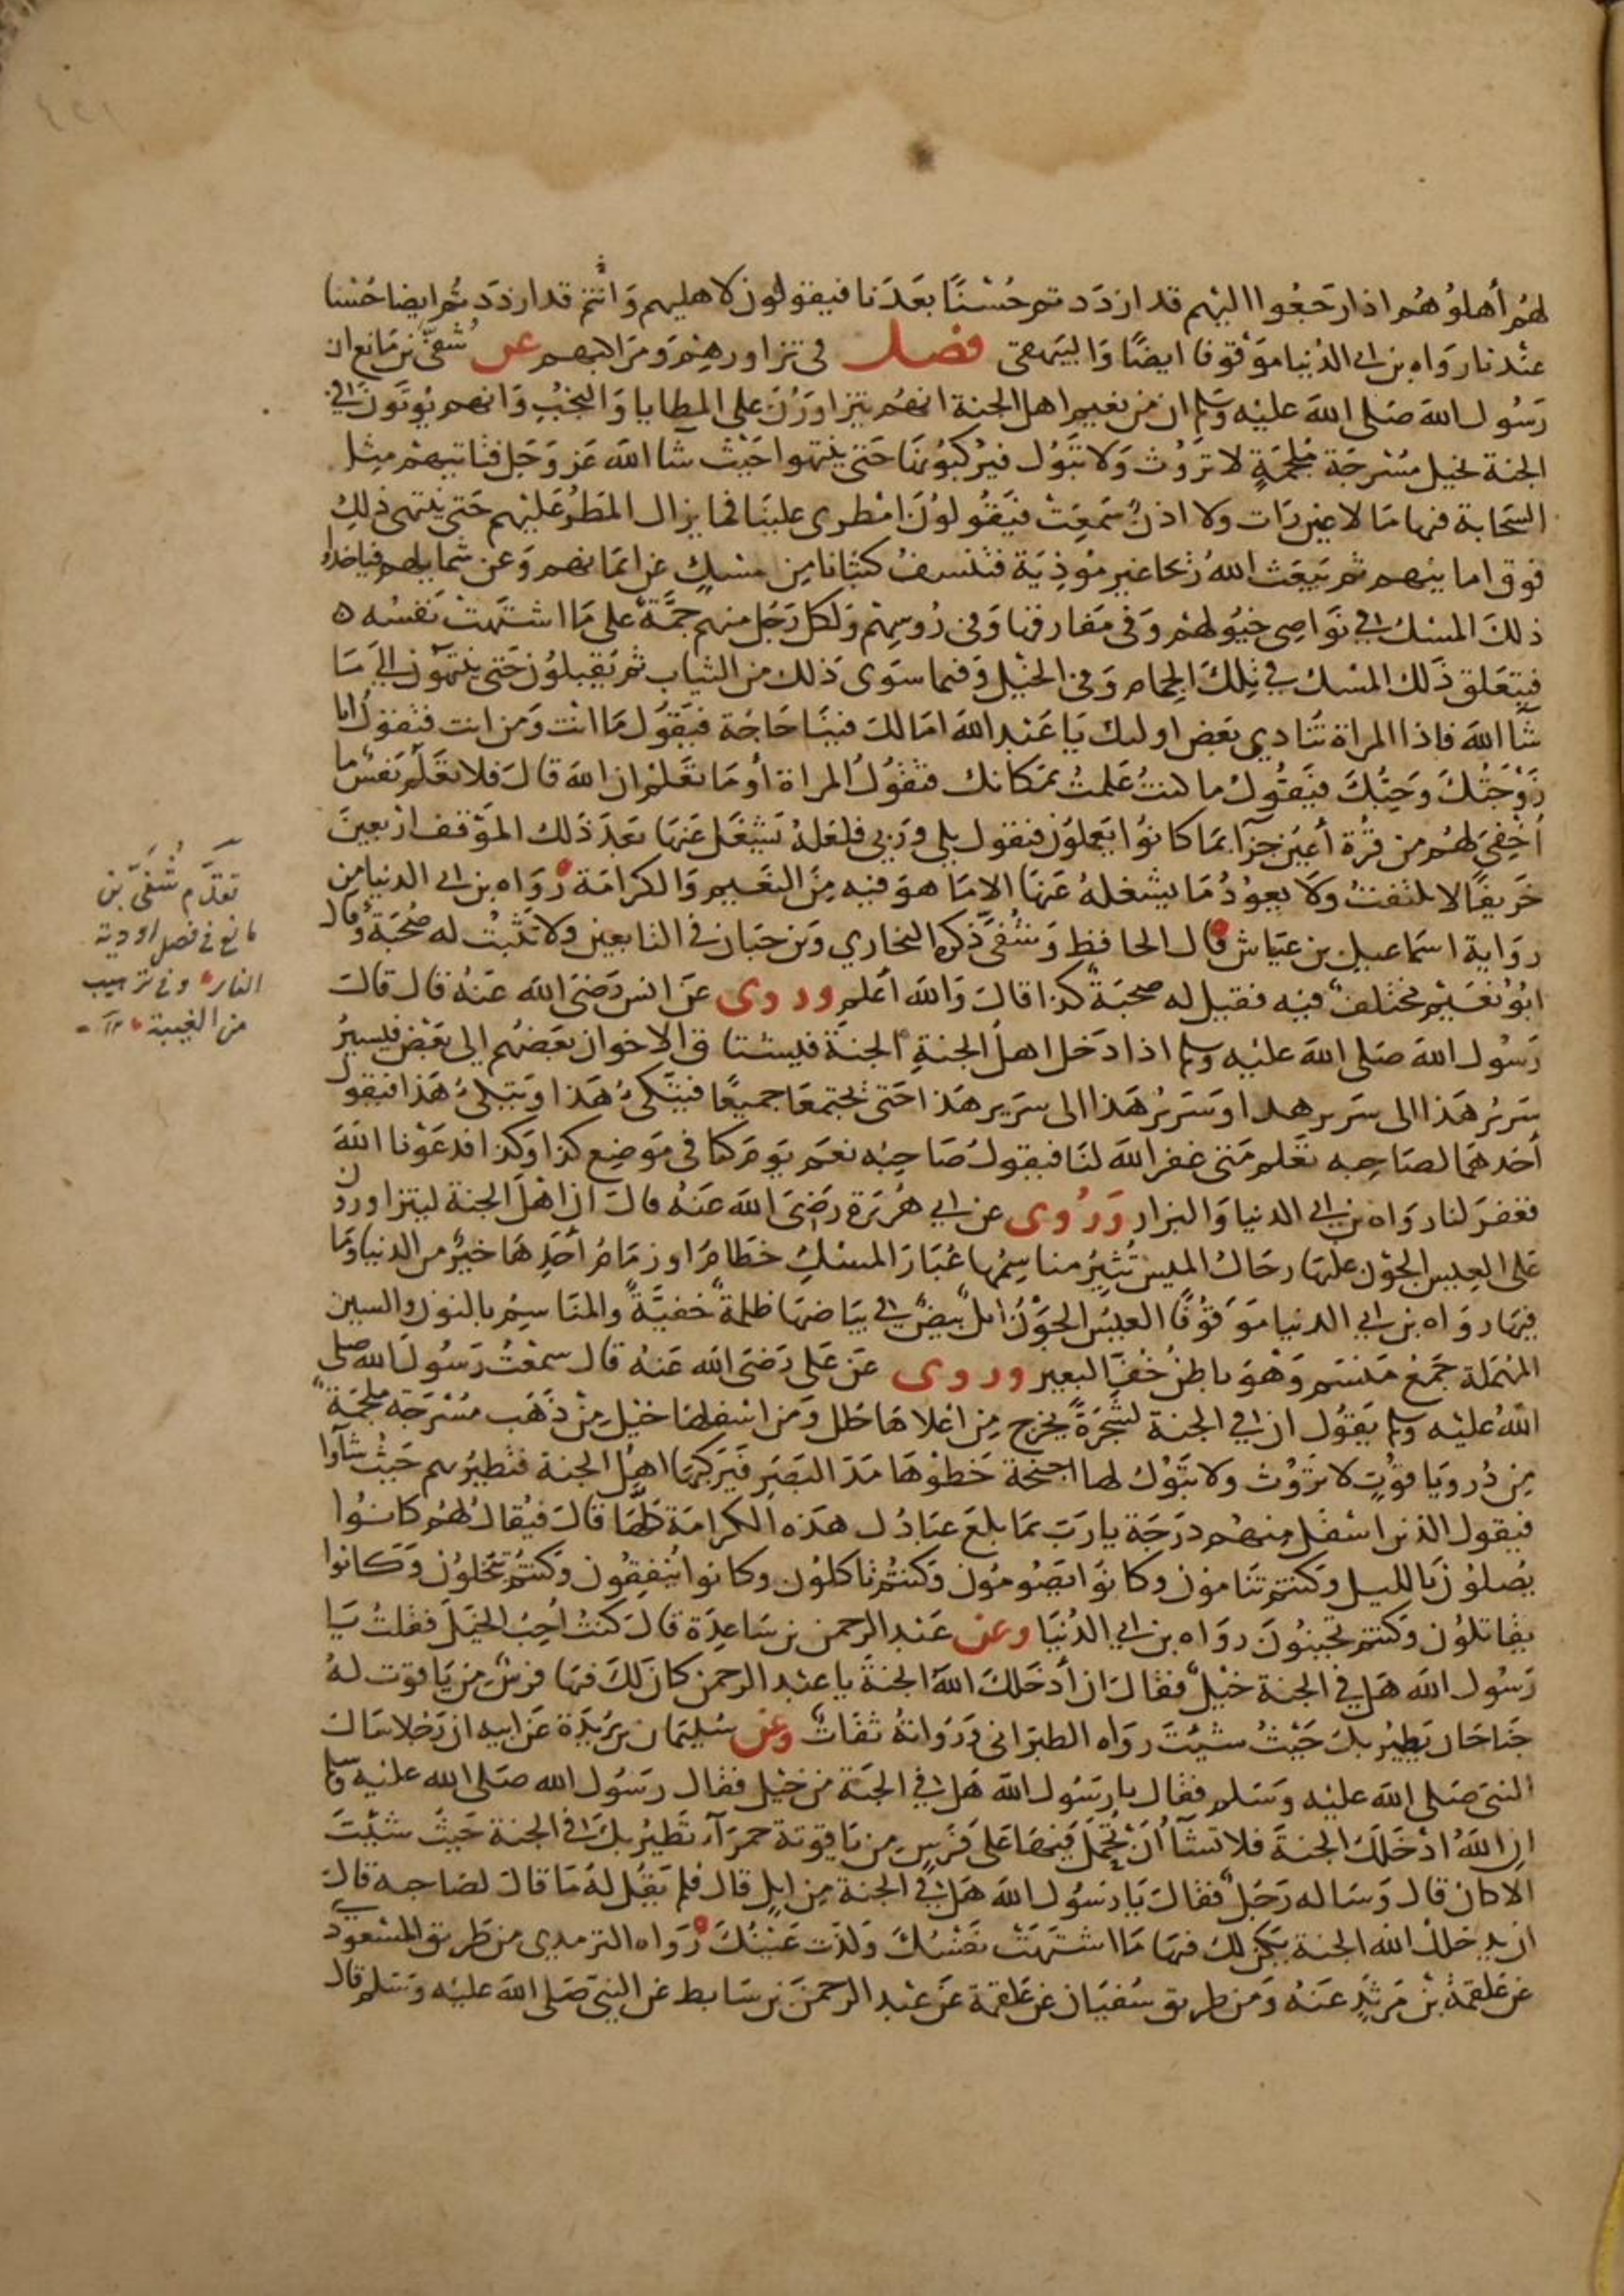 لهم أهلوهم اذا رجعوا اليهم قد ازددتم حسنًا بعدنا فيقولون لاهليهم وانتم قد ازددتم ايضا حسنا
عندنا رواه بن ابي الدنيا موقوفا ايضًا والبيهقي فصل في تزاورهم ومراكبهم عن شفيّ بن ماتع ان
رسول الله صلى الله عليه وسلم ان من نعيم اهل الجنة انهم يتزاورن على المطايا والنجب وانهم يوتون في
الجنة بخيل مسرجة ملجمة لا تروث ولا تبول فيركبونها حتى ينتهوا حيث شا الله عز وجل فتاتيهم مثل
السحابة فيها ما لا عين رات ولا اذن سمعت فيقولون امطري علينا فما يزال المطر عليهم حتى ينتهي ذلك
فوق امانيهم ثم يبعث الله ريحا غير موذية فتنسف كثبانا من مسك عن ايمانهم وعن شمايلهم فياخذ
ذلك المسك في نواصي خيولهم وفي مفارقها وفي روسهم ولكل رجل منهم جمة على ما اشتهت نفسه ه
فيتعلق ذلك المسك في تلك الجمام وفي الخيل وفيما سوى ذلك من الثياب ثم يقبلون حتى ينتهون الى ما
شا الله فاذا المراة تنادي بعض اوليك يا عبد الله امالك فينا حاجة فيقول ما انت ومن انت فتقول انا
زوجتك وحبك فيقول ما كنت علمت بمكانك فتقول المراة أوما تعلم ان الله قال فلا تعلم نفس ما
أخفي لهم من قرة أعين جزآ بما كانوا يعملون فيقول بلى وربي فلعله يشغل عنها بعد ذلك الموقف اربعين
خريفًا لا يلتفت ولا يعود ما يشغله عنها الا ما هو فيه من النعيم والكرامة رواه بن ابي الدنيا من
رواية اسماعيل بن عياش قال الحافظ وشفي ذكره البخاري وبن حبان في التابعين ولا تثبت له صحبة وقال
ابو نعيم مختلف فيه فقيل له صحبة كذا قال والله أعلم وروى عن انس رضى الله عنه قال قال
رسول الله صلى الله عليه وسلم اذا دخل اهل الجنة الجنة فيشتاق الاخوان بعضهم الى بعض فيسير
سرير هذا الى سرير هذا وسرير هذا الى سرير هذا حتى يجتمعا جميعًا فيتكئ هذا ويتكئ هذا فيقول
أحدهما لصاحبه تعلم متى غفر الله لنا فيقول صاحبه نعم يوم كنا في موضع كذا وكذا فدعونا الله
فغفر لنا رواه بن ابي الدنيا والبزار وروى عن ابي هريرة رضى الله عنه قال ان اهل الجنة ليتزاورون
على العيس الجون عليها رحال الميس تثير مناسمها غبار المسك خطام او زمام أحدها خير من الدنيا وما
فيها رواه بن ابي الدنيا موقوفًا العيس الجون ابل بيض في بياضها ظلمة خفية والمناسم بالنون والسين
المهملة جمع منسم وهو باطن خف البعير وروى عن علي رضى الله عنه قال سمعت رسول الله صلى
الله عليه وسلم يقول ان في الجنة لشجرة يخرج من اعلاها حلل ومن اسفلها خيل من ذهب مسرجة ملجمة
من در وياقوت لا تروث ولا تبول لها اجنحة خطوها مد البصر فيركبها اهل الجنة فتطير بهم حيث شآوا
فيقول الذين اسفل منهم درجة يا رب بما بلغ عبادك هذه الكرامة كلها قال فيقال لهم كانوا
يصلون بالليل وكنتم تنامون وكانوا يصومون وكنتم تاكلون وكانوا ينفقون وكنتم تبخلون وكانوا
يقاتلون وكنتم تجبنون رواه بن ابي الدنيا وعن عبد الرحمن بن ساعدة قال كنت أحب الخيل فقلت يا
رسول الله هل في الجنة خيل فقال ان أدخلك الله الجنة يا عبد الرحمن كان لك فيها فرس من ياقوت له
جناحان يطير بك حيث شيت رواه الطبراني ورواته ثقات وعن سليمان بن بريدة عن ابيه ان رجلا سال
النبى صلى الله عليه وسلم فقال يا رسول الله هل في الجنة من خيل فقال رسول الله صلى الله عليه وسلم
ان الله ادخلك الجنة فلا تشآ أن تحمل فيها على فرس من ياقوتة حمرآء تطير بك في الجنة حيث شيت
الا كان قال وساله رجل فقال يا رسول الله هل في الجنة من ابل قال فلم يقل له ما قال لصاحبه قال
ان يدخلك الله الجنة يكن لك فيها ما اشتهت نفسك ولذت عينك رواه الترمدي من طريق المسعودي
عن علقمة بن مرثد عنه ومن طريق سفيان عن علقمة عن عبد الرحمن بن سابط عن النبي صلى الله عليه وسلم قال
تقدم شفيّ بن
ماتع في فصل اودية
النار وفي ترهيب
من الغيبة